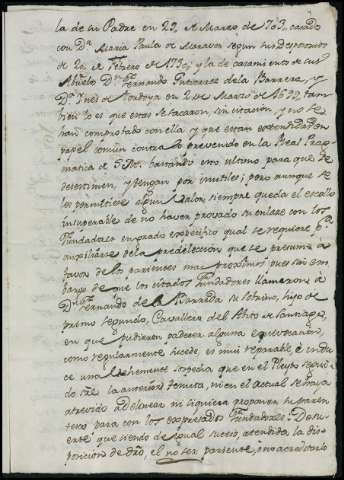 la de su Padre en 29, de Marzo, de 703, casado
con Dª Maria Paula de
de 22, de Febrero de 1730; y la de casamiento de sus
Abuelo Dn Fernando Gutierrez de la Barreda, y
Dª Ynés de Mendoza en 2 de Marzo de 1699, tam
bien lo es que estas se sacaron, sin citacion, y no se
han comprobado con ella, y que estan extendidas en
papel comun contra lo prevenido en la Real Prag
matica de S. M., bastando esto ultimo, para que se
desestimen, y tengan por inutiles; pero aunque se
les permitiese algun valor, siempre queda el escollo
insuperable de no haver provado su enlase con los
Fundadores en grado especifico, qual se requiere pª
auxiliarse de la predileccion que se presume a
favor de los parientes mas proximos; pues sin em
bargo de que los citados Fundadores llamaron á
Dn Fernando de la Barreda su sobrino, hijo de
primo segundo, Cavallero del Abito de Santiago,
en que pudieron padecer alguna equivocacion,
como regularmente sucede, es mui reparable, é indu
ce una vehemente sospecha que en el Pleyto seguido
sobre la anterior demanda, ni en el actual se haya
atrevido á deducir ni siquiera proponer su paren
tesco para con los expresados Fundadores: De su
erte que siendo de igual suceso, atendida la dis
posicion de dro, el no ser pariente, ó no acreditarlo